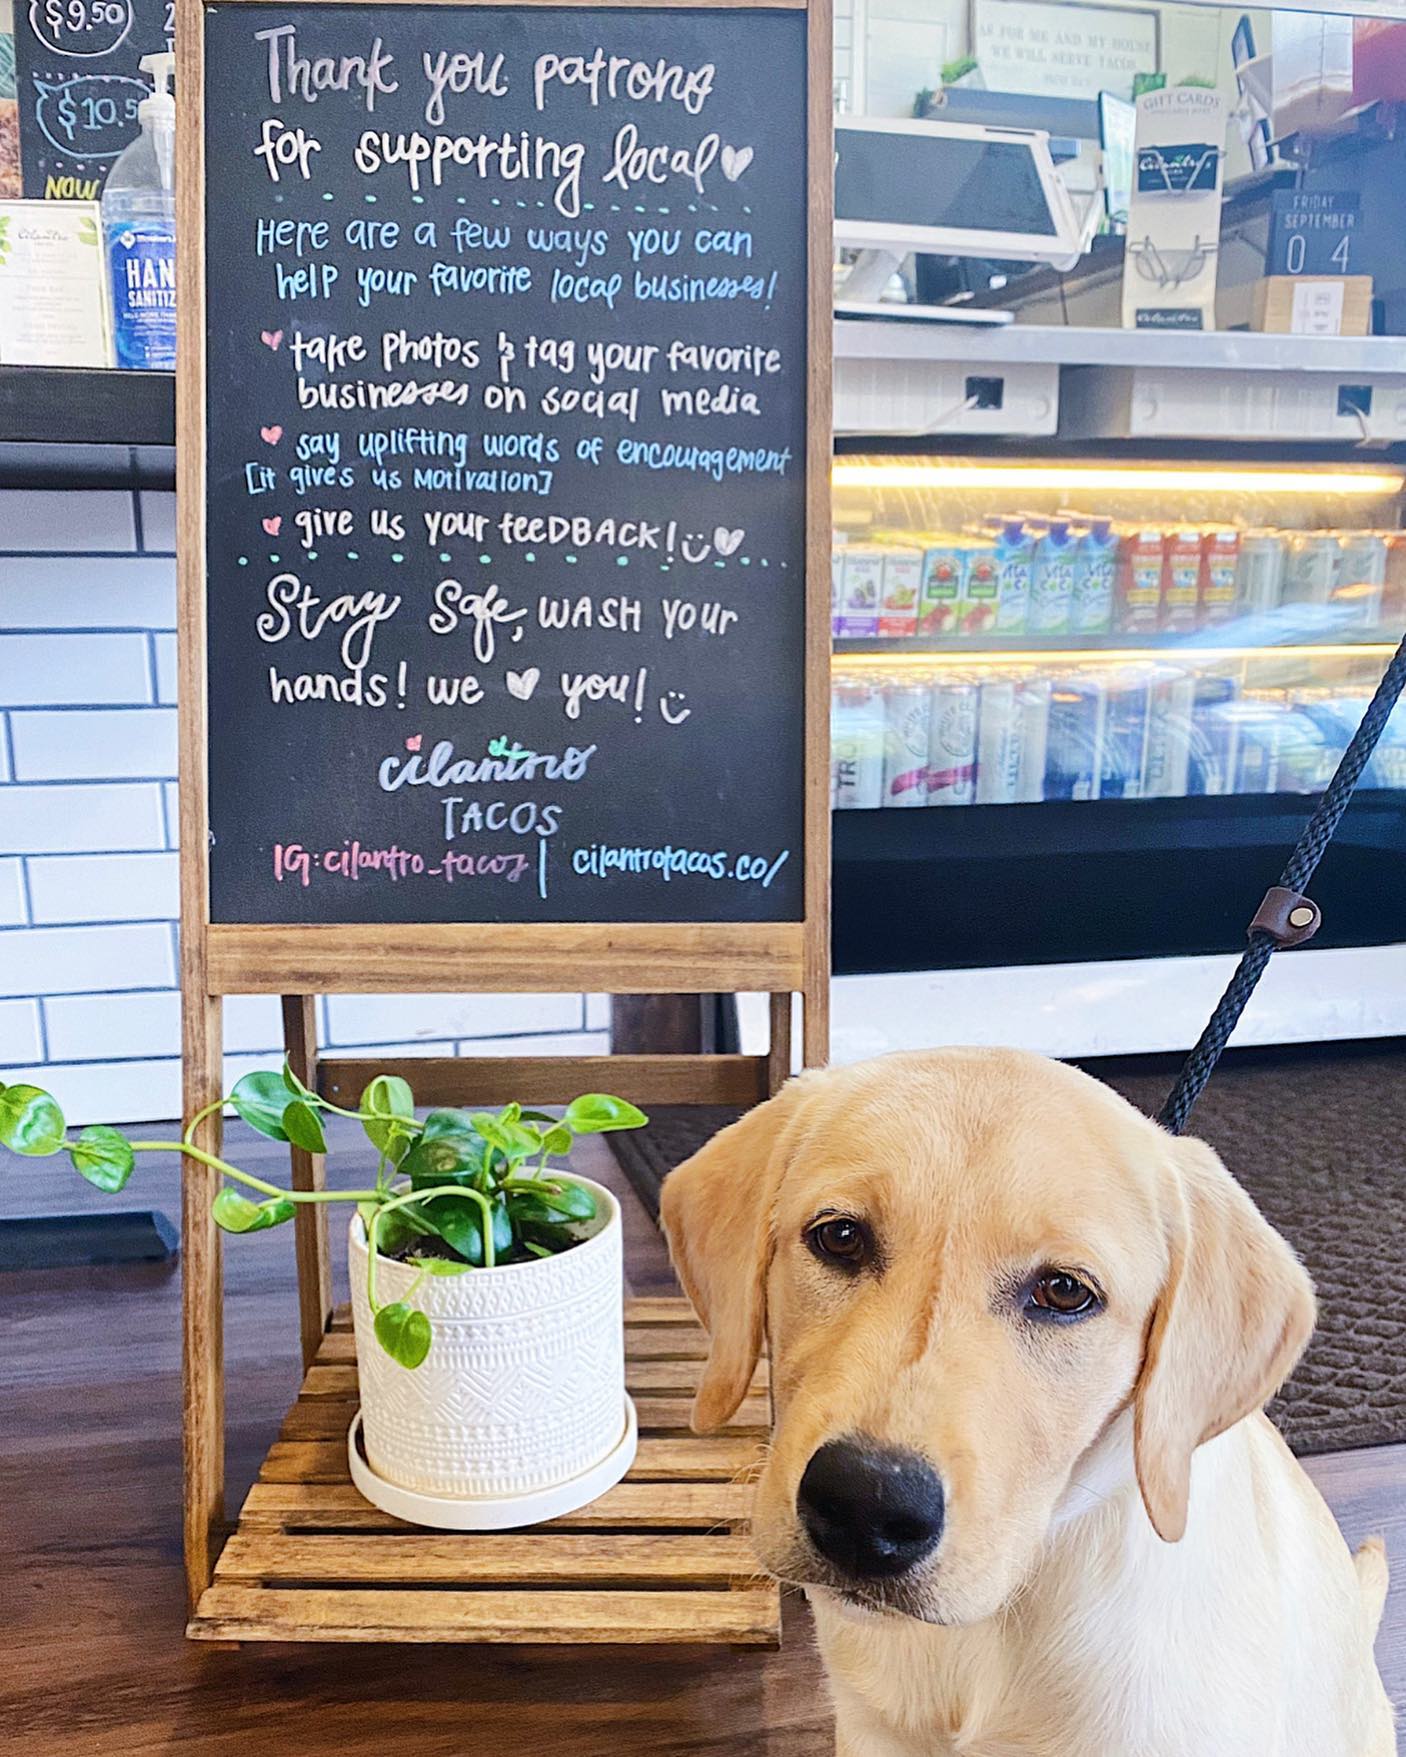 Thank you patrons
for supporting local
Here are a few ways you can
help your favorite local businesses!
take photos & tag your favorite
businesses on social media
say uplifting words of encouragement
[it gives us motivation]
give us your feeDBACK!
Stay Safe, WASH your
hands! we you!
cilantro
TACOS
IG:cilantro_tacos | cilantrotacos.co/
$9.50
$10.5
NOW
Cilantro
HAN
SANITIZ
AS FOR ME AND MY HOUSE
WE WILL SERVE TACOS.
GIFT CARDS
Cilantro
FRIDAY
SEPTEMBER
0 4
Cilantro
VITA
COCO